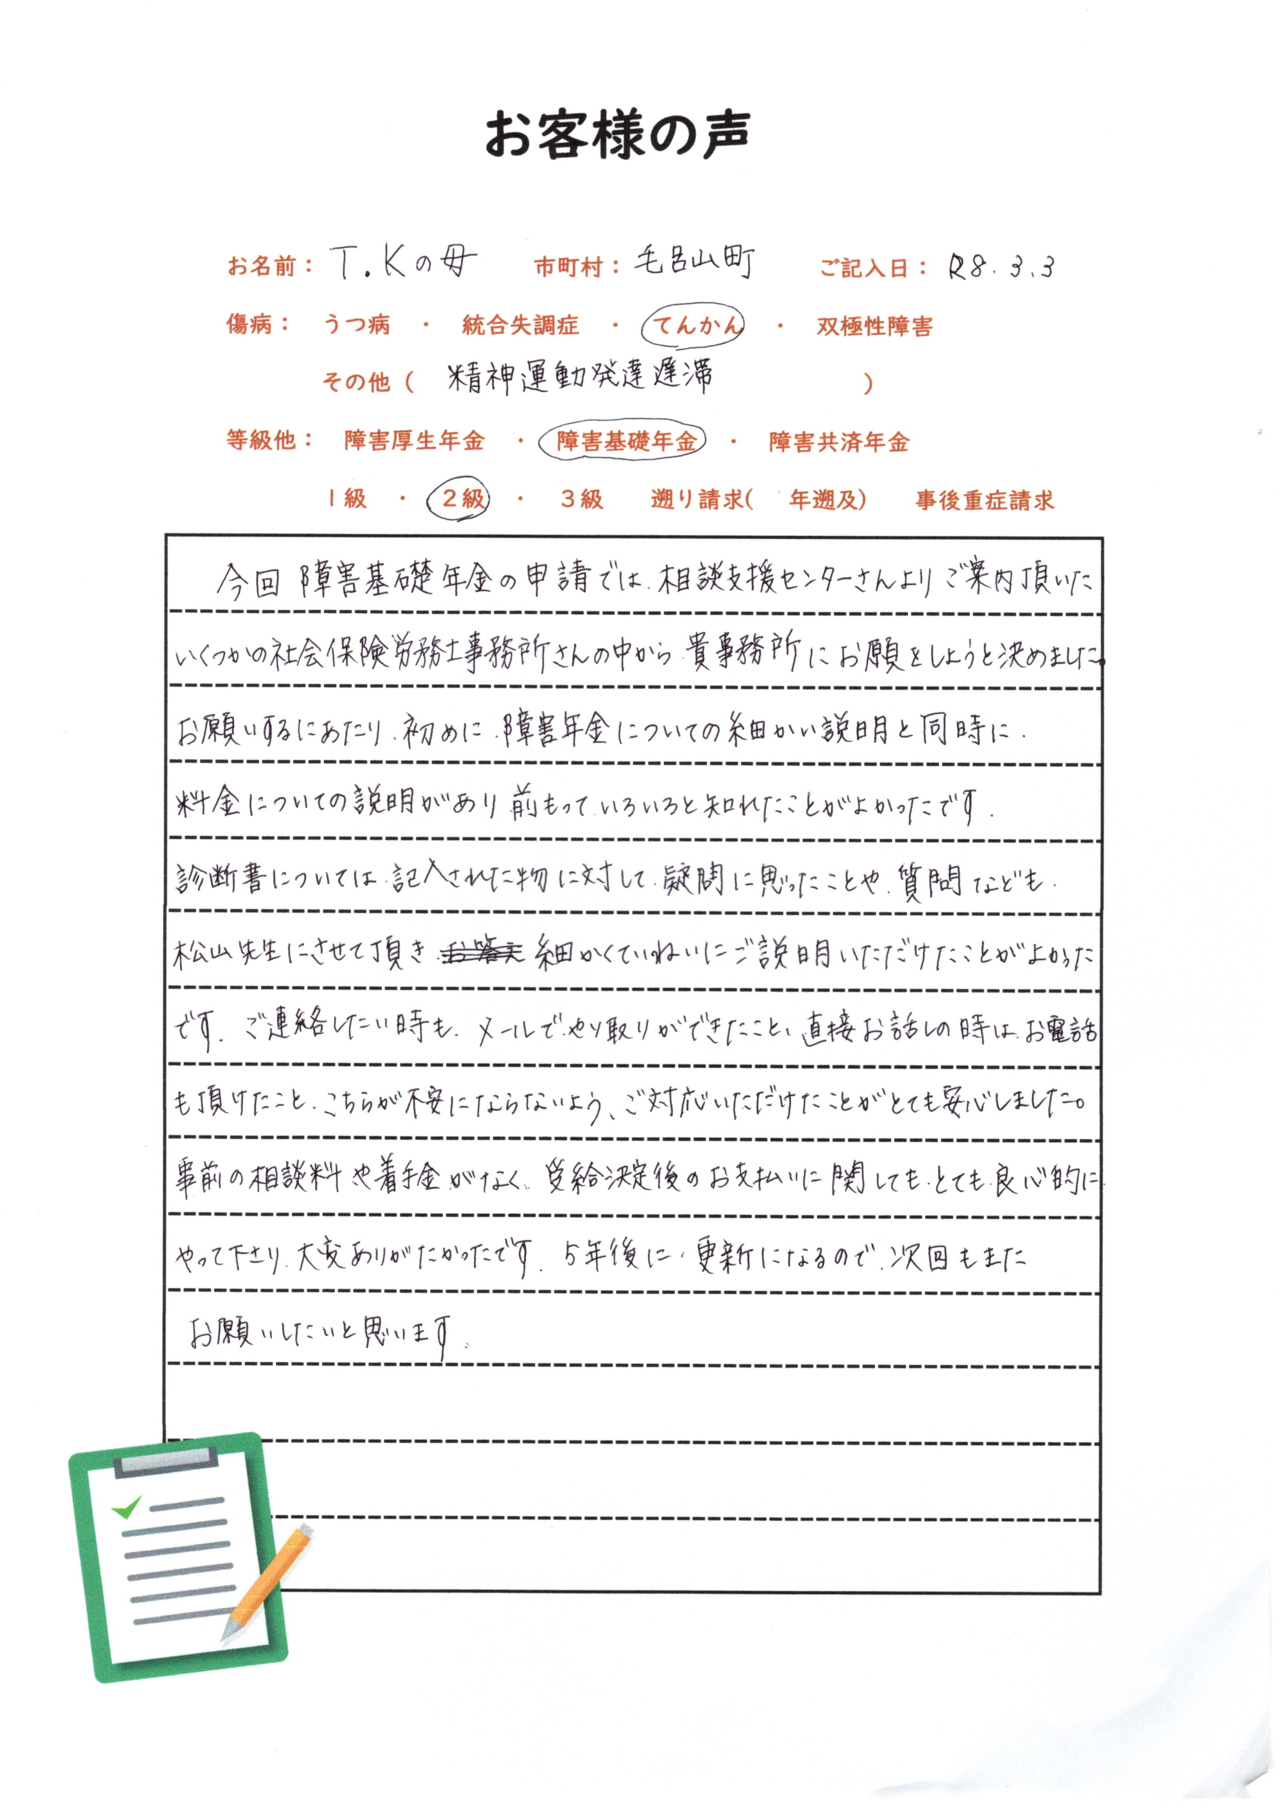 お客様の声
お名前： T.Kの母 市町村： 毛呂山町 ご記入日： R8.3.3
傷病： うつ病 ・ 統合失調症 ・ てんかん ・ 双極性障害
その他（ 精神運動発達遅滞 ）
等級他： 障害厚生年金 ・ 障害基礎年金 ・ 障害共済年金
1級 ・ 2級 ・ 3級 遡り請求( 年遡及) 事後重症請求
今回障害基礎年金の申請では、相談支援センターさんよりご案内頂いた
いくつかの社会保険労務士事務所さんの中から、貴事務所にお願をしようと決めました。
お願いするにあたり、初めに、障害年金についての細かい説明と同時に、
料金についての説明があり前もっていろいろと知れたことがよかったです。
診断書については、記入された物に対して、疑問に思ったことや、質問なども、
松山先生にさせて頂き、細かくていねいにご説明いただけたことがよかった
です。ご連絡したい時も、メールでやり取りができたこと、直接お話しの時は、お電話
も頂けたこと、こちらが不安にならないよう、ご対応いただけたことがとても安心しました。
事前の相談料や着手金がなく、受給決定後のお支払いに関しても、とても良心的に
やって下さり、大変ありがたかったです。5年後に、更新になるので、次回もまた
お願いしたいと思います。